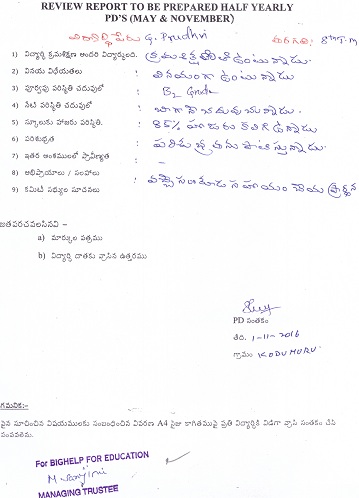 REVIEW REPORT TO BE PREPARED HALF YEARLY
PD'S (MAY & NOVEMBER)
విద్యార్థి పేరు G. Prudhvi తరగతి: 8th T.M
1) విద్యార్థి క్రమశిక్షణ అందరి విద్యార్థులది. క్రమశిక్షణతో ఉంటున్నాడు.
2) వినయ విధేయతలు : వినయంగా ఉంటున్నాడు
3) పూర్వపు పరిస్థితి చదువులో : B2 Grade
4) నేటి పరిస్థితి చదువులో : బాగా చదువుచున్నాడు.
5) స్కూలుకు హాజరు పరిస్థితి. : 85% హాజరు కలిగి ఉన్నాడు
6) పరిశుభ్రత : పరిశుభ్రతను పాటిస్తున్నాడు.
7) ఇతర అంశములలో ప్రావీణ్యత : -
8) అభిప్రాయాలు / సలహాలు :
9) కమిటి సభ్యుల సూచనలు : వచ్చే సంవత్సరం సహాయం చేయ ప్రార్థన
జతపరచవలసినవి –
a) మార్కుల పత్రము
b) విద్యార్థి దాతకు వ్రాసిన ఉత్తరము
PD సంతకం
తేది. 1-11-2016
గ్రామం KODUMURU
గమనిక:-
పైన సూచించిన విషయములకు సంబంధించిన వివరణ A4 సైజు కాగితముపై ప్రతి విద్యార్థికి విడిగా వ్రాసి సంతకం చేసి
పంపవలెను.
For BIGHELP FOR EDUCATION
MANAGING TRUSTEE